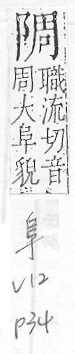 隝
職流切音
周大阜貌
阜
V12
P34